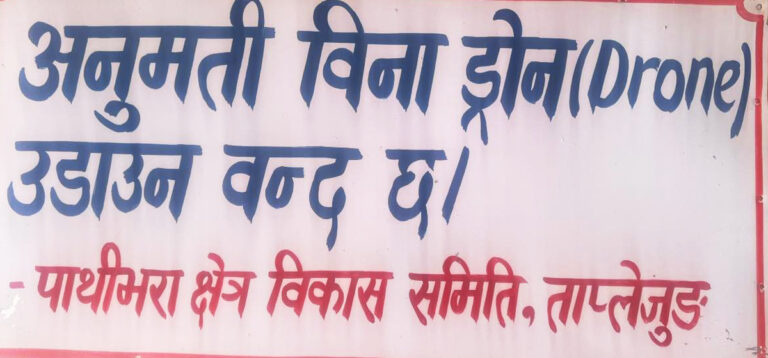 अनुमती विना ड्रोन(Drone)
उडाउन वन्द छ।
- पाथीभरा क्षेत्र विकास समिति, ताप्लेजुङ